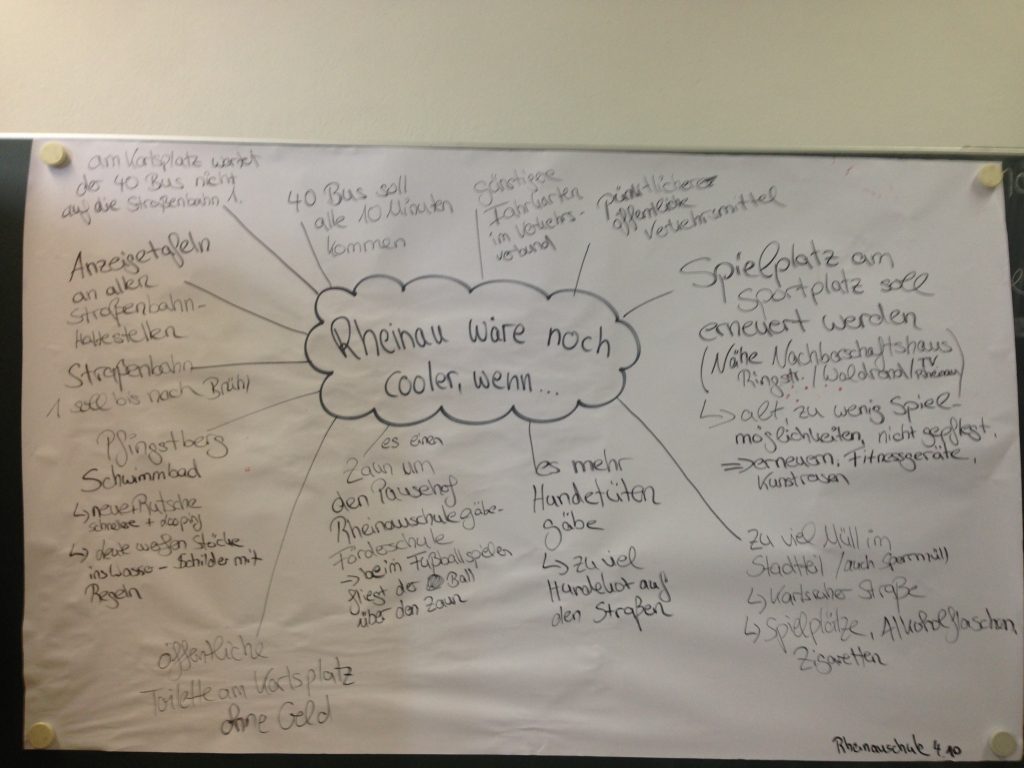 am Karlsplatz wartet
der 40 Bus nicht
auf die Straßenbahn 1.
40 Bus soll
alle 10 Minuten
kommen
günstigere
Fahrkarten
im Verkehrs-
verbund
pünktlichere
öffentliche
Verkehrsmittel
Anzeigetafeln
an allen
Straßenbahn-
Haltestellen
Straßenbahn
1 soll bis nach Brühl
Rheinau wäre noch
cooler, wenn...
Spielplatz am
Sportplatz soll
erneuert werden
(Nähe Nachbarschaftshaus
Ringstr. / Waldrand / TV
Rheinau)
↳ alt, zu wenig Spiel-
möglichkeiten, nicht gepflegt.
⇒ erneuern, Fitnessgeräte,
Kunstrasen
Pfingstberg
Schwimmbad
↳ neue Rutsche
schnelle + looping
↳ Leute werfen Stöcke
ins Wasser - Schilder mit
Regeln
es einen
Zaun um
den Pausehof
Rheinauschule gäbe-
Fördeschule
⇒ beim Fußballspielen
fliegt der Ball
über den Zaun
es mehr
Hundetüten
gäbe
↳ zu viel
Hundekot auf
den Straßen
zu viel Müll im
Stadtteil / auch Sperrmüll
↳ Karlsruher Straße
↳ Spielplätze, Alkoholflaschen,
Zigaretten
öffentliche
Toilette am Karlsplatz
ohne Geld
Rheinauschule 4.10